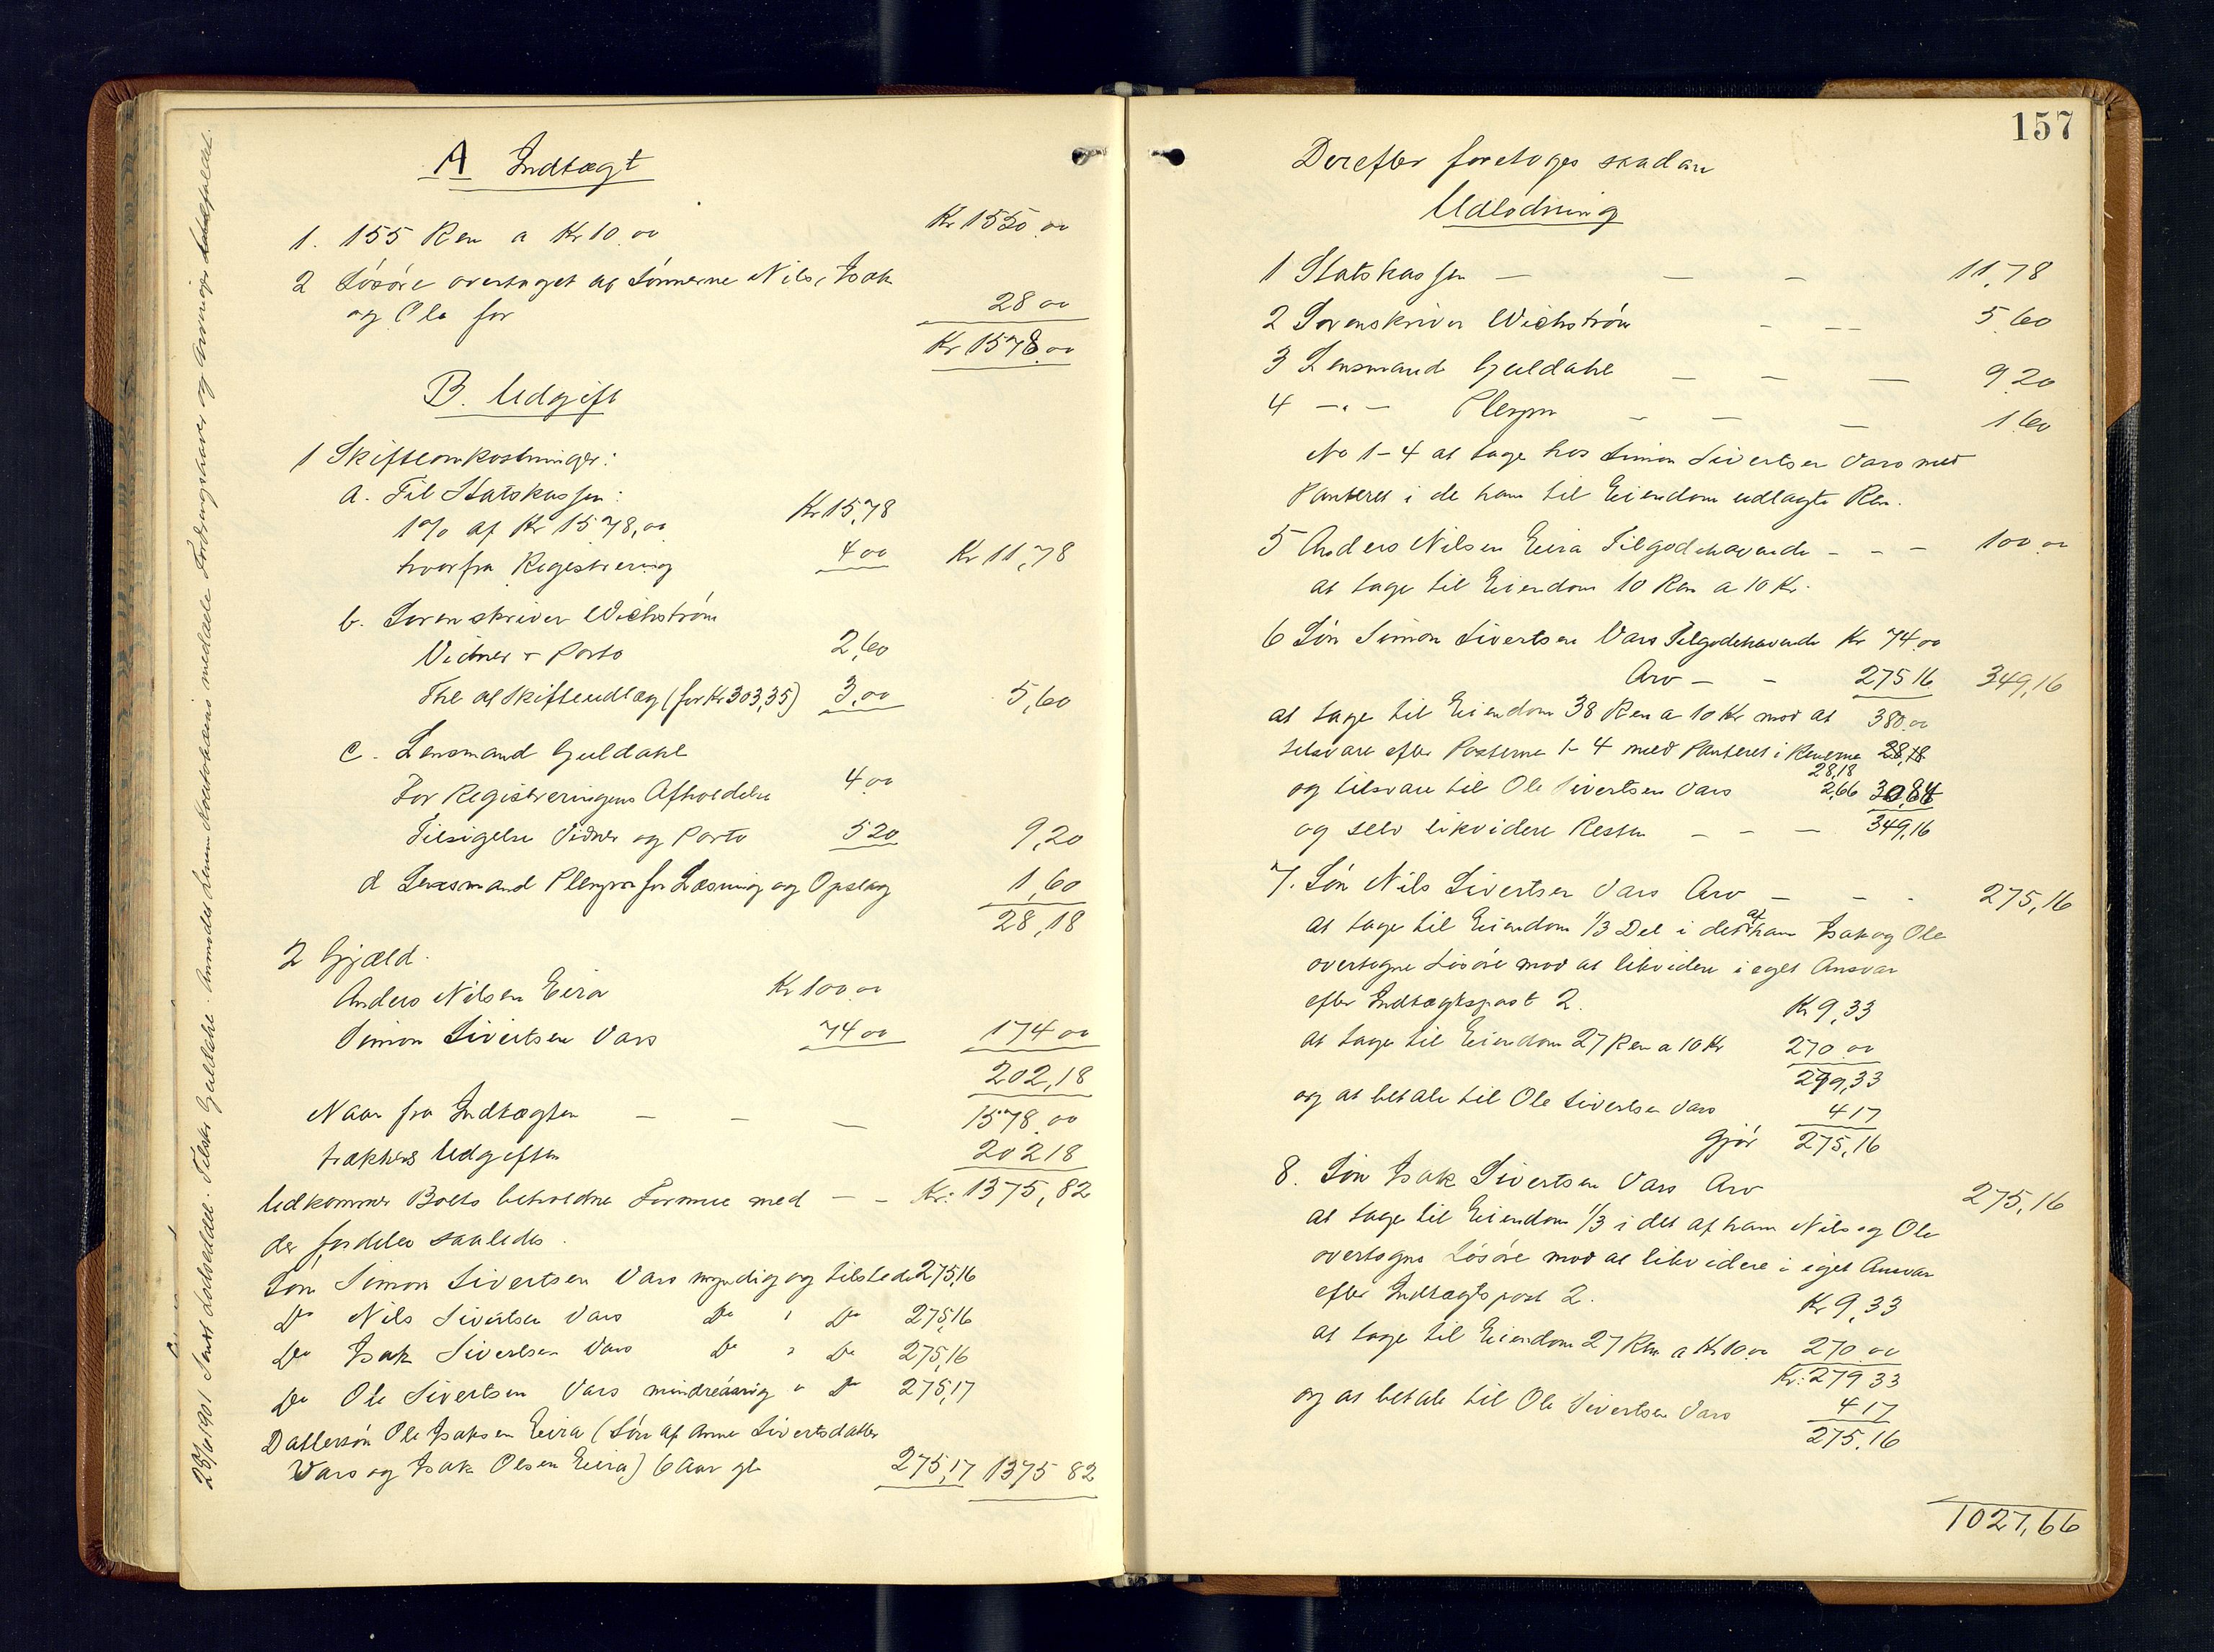 A Indtægt
1. 155 Ren a Kr 10.00 Kr 1550.00
2 Løsøre overtaget af Sønnerne Nils, Isak
og Ole for 28 00
Kr 1578.00
B. Udgift
1 Skifteomkostninger:
a. Til Statskassen:
1% af Kr 1578,00 Kr 15,78
hvorfra Registrering 4 00 Kr 11,78
b. Sorenskriver Wichstrøm
Vidner & Porto 2,60
Thl af Skifteudlæg (for Kr 303,35) 3,00 5,60
c. Lensmand Guldahl
For Registreringens Afholdelse 4 00
Tilsigelse Vidner og Porto 5 20 9,20
d Lensmand Plenum for Læsning og Opslag 1,60
28,18
2 Gjæld.
Anders Nilsen Eira Kr 100.00
Simon Sivertsen Vars 74 00 174 00
202,18
Naar fra Indtægten — — — 1578.00
trækkes Udgiften 202 18
Udkommer Boets beholdne Formue med — — Kr: 1375,82
der fordeles saaledes.
Søn Simon Sivertsen Vars myndig og tilstede 275,16
Do Nils Sivertsen Vars Do , Do 275,16
Do Isak Sivertsen Vars Do , Do 275,16
Do Ole Sivertsen Vars mindreaarig " Do 275,17
Dattersøn Ole Isaksen Eira (Søn af Anne Sivertsdatter
Vars og Isak Olsen Eira) 6 Aar gl 275,17 1375 82
157
Derefter foretoges saadan
Udlodning
1 Statskassen — — — 11,78
2 Sorenskriver Wichstrøm - -- 5.60
3 Lensmand Guldahl — — — 9 20
4 —"— — — — 1.60
No 1-4 at tage hos Simon Sivertsen Vars med
Panteret i de ham til Eiendom udlagte Ren.
5 Anders Nilsen Eira Tilgodehavende - - - 100 00
at tage til Eiendom 10 Ren a 10 Kr.
6 Søn Simon Sivertsen Vars Tilgodehavende Kr 74.00
Arv — - 275 16 349,16
at tage til Eiendom 38 Ren a 10 Kr mod at 380.00
tilsvare efter Posterne 1-4 med Panteret i Renerne 28,18
28,18
og tilsvare til Ole Sivertsen Vars 2,66 30,84
og selv likvidere Resten — — — 349,16
7. Søn Nils Sivertsen Vars Arv — - - 275,16
at tage til Eiendom 1/3 Del i det af ham Isak og Ole
overtagne Løsøre mod at likvidere i eget Ansvar
efter Indtægtspost 2. Kr 9,33
at tage til Eiendom 27 Ren a 10 Kr 270.00
279,33
og at betale til Ole Sivertsen Vars 4 17
gjør 275,16
8. Søn Isak Sivertsen Vars Arv 275,16
at tage til Eiendom 1/3 i det af ham Nils og Ole
overtagne Løsøre mod at likvidere i eget Ansvar
efter Indtægtspost 2. Kr 9,33
at tage til Eiendom 27 Ren a Kr 10.00 270.00
Kr: 279 33
og at betale til Ole Sivertsen Vars 4 17
275,16
1027,66